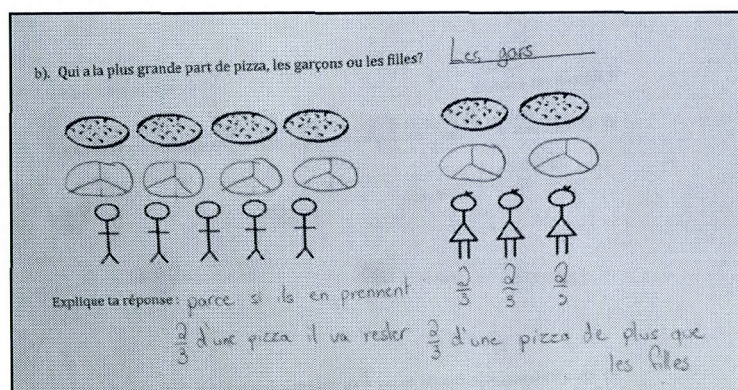 b). Qui a la plus grande part de pizza, les garçons ou les filles? Les gars
2/3 2/3 2/3
Explique ta réponse: parce si ils en prennent
2/3 d'une pizza il va rester 2/3 d'une pizza de plus que
les filles